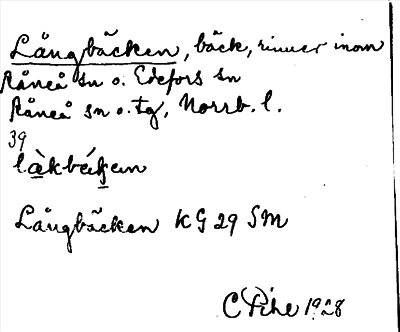 Långbäcken, bäck, rinner inom
Råneå sn o. Edefors sn
Råneå sn o. tg, Norrb. l.
39
Långbäcken KG 29 SM
C Pihe 1928